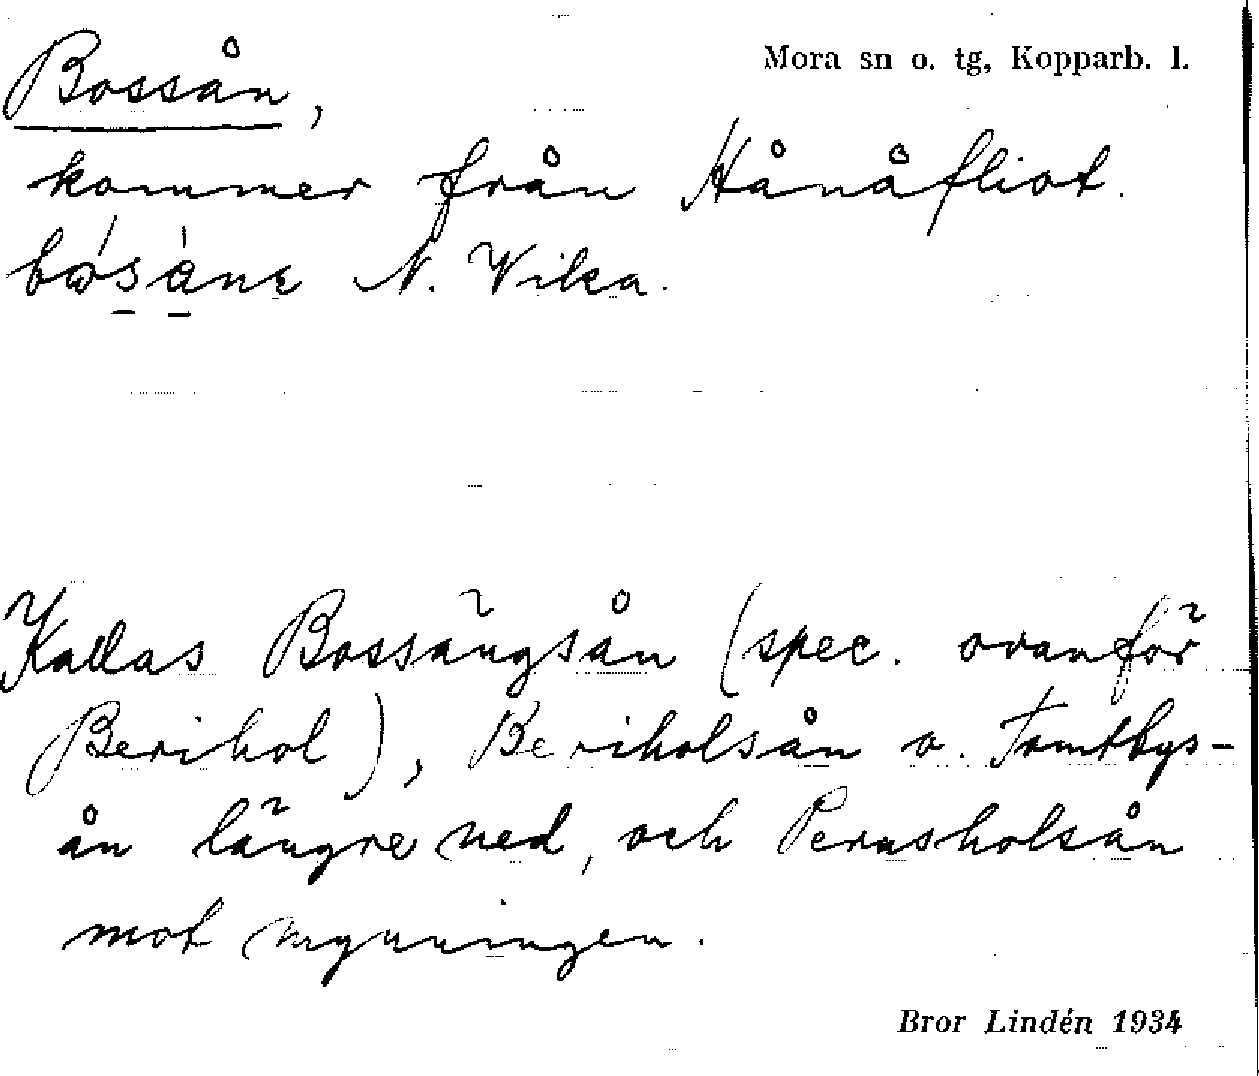 Mora sn o. tg, Kopparb. l.
Bossån,
kommer från Hånåfliot.
N. Vika.
Kallas Bossängsån (spec. ovanför
Berihol), Beriholsån o. Tomtbys-
ån längre ned, och Pernsholsån
mot mynningen.
Bror Lindén 1934